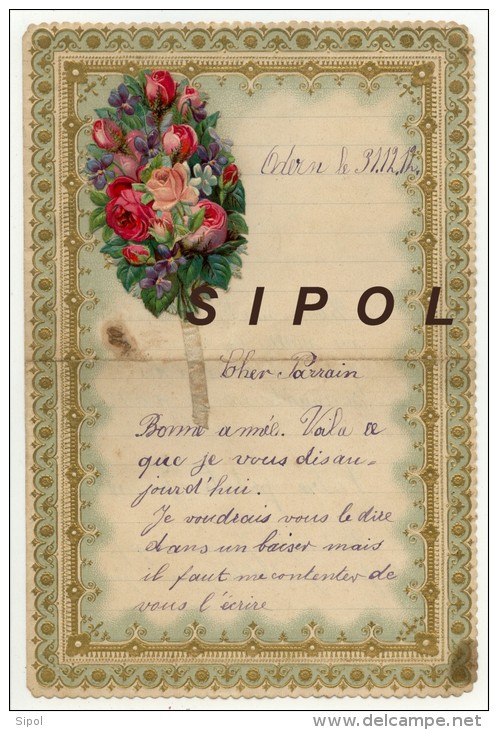 Odern le 31.12.12.
SIPOL
Cher Parrain
Bonne année. Vala ce
que je vous dis au-
jourd'hui.
Je voudrais vous le dire
dans un baiser mais
il faut me contenter de
vous l'écrire
Sipol
delcampe.net